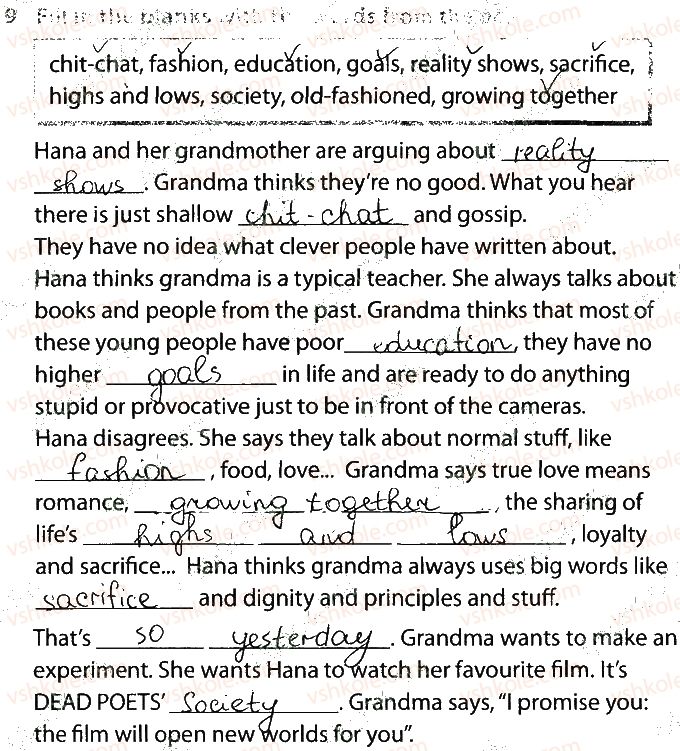 9 Fill in the blanks with the words from the
chit-chat, fashion, education, goals, reality shows, sacrifice,
highs and lows, society, old-fashioned, growing together
Hana and her grandmother are arguing about reality
shows. Grandma thinks they're no good. What you hear
there is just shallow chit-chat and gossip.
They have no idea what clever people have written about.
Hana thinks grandma is a typical teacher. She always talks about
books and people from the past. Grandma thinks that most of
these young people have poor education, they have no
higher goals in life and are ready to do anything
stupid or provocative just to be in front of the cameras.
Hana disagrees. She says they talk about normal stuff, like
fashion, food, love... Grandma says true love means
romance, growing together, the sharing of
life's highs and lows, loyalty
and sacrifice... Hana thinks grandma always uses big words like
sacrifice and dignity and principles and stuff.
That's so yesterday. Grandma wants to make an
experiment. She wants Hana to watch her favourite film. It's
DEAD POETS' Society. Grandma says, "I promise you:
the film will open new worlds for you".